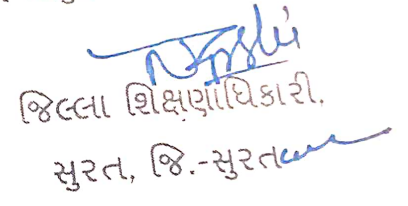 જિલ્લા શિક્ષણાધિકારી.
સુરત, જિ.-સુરત